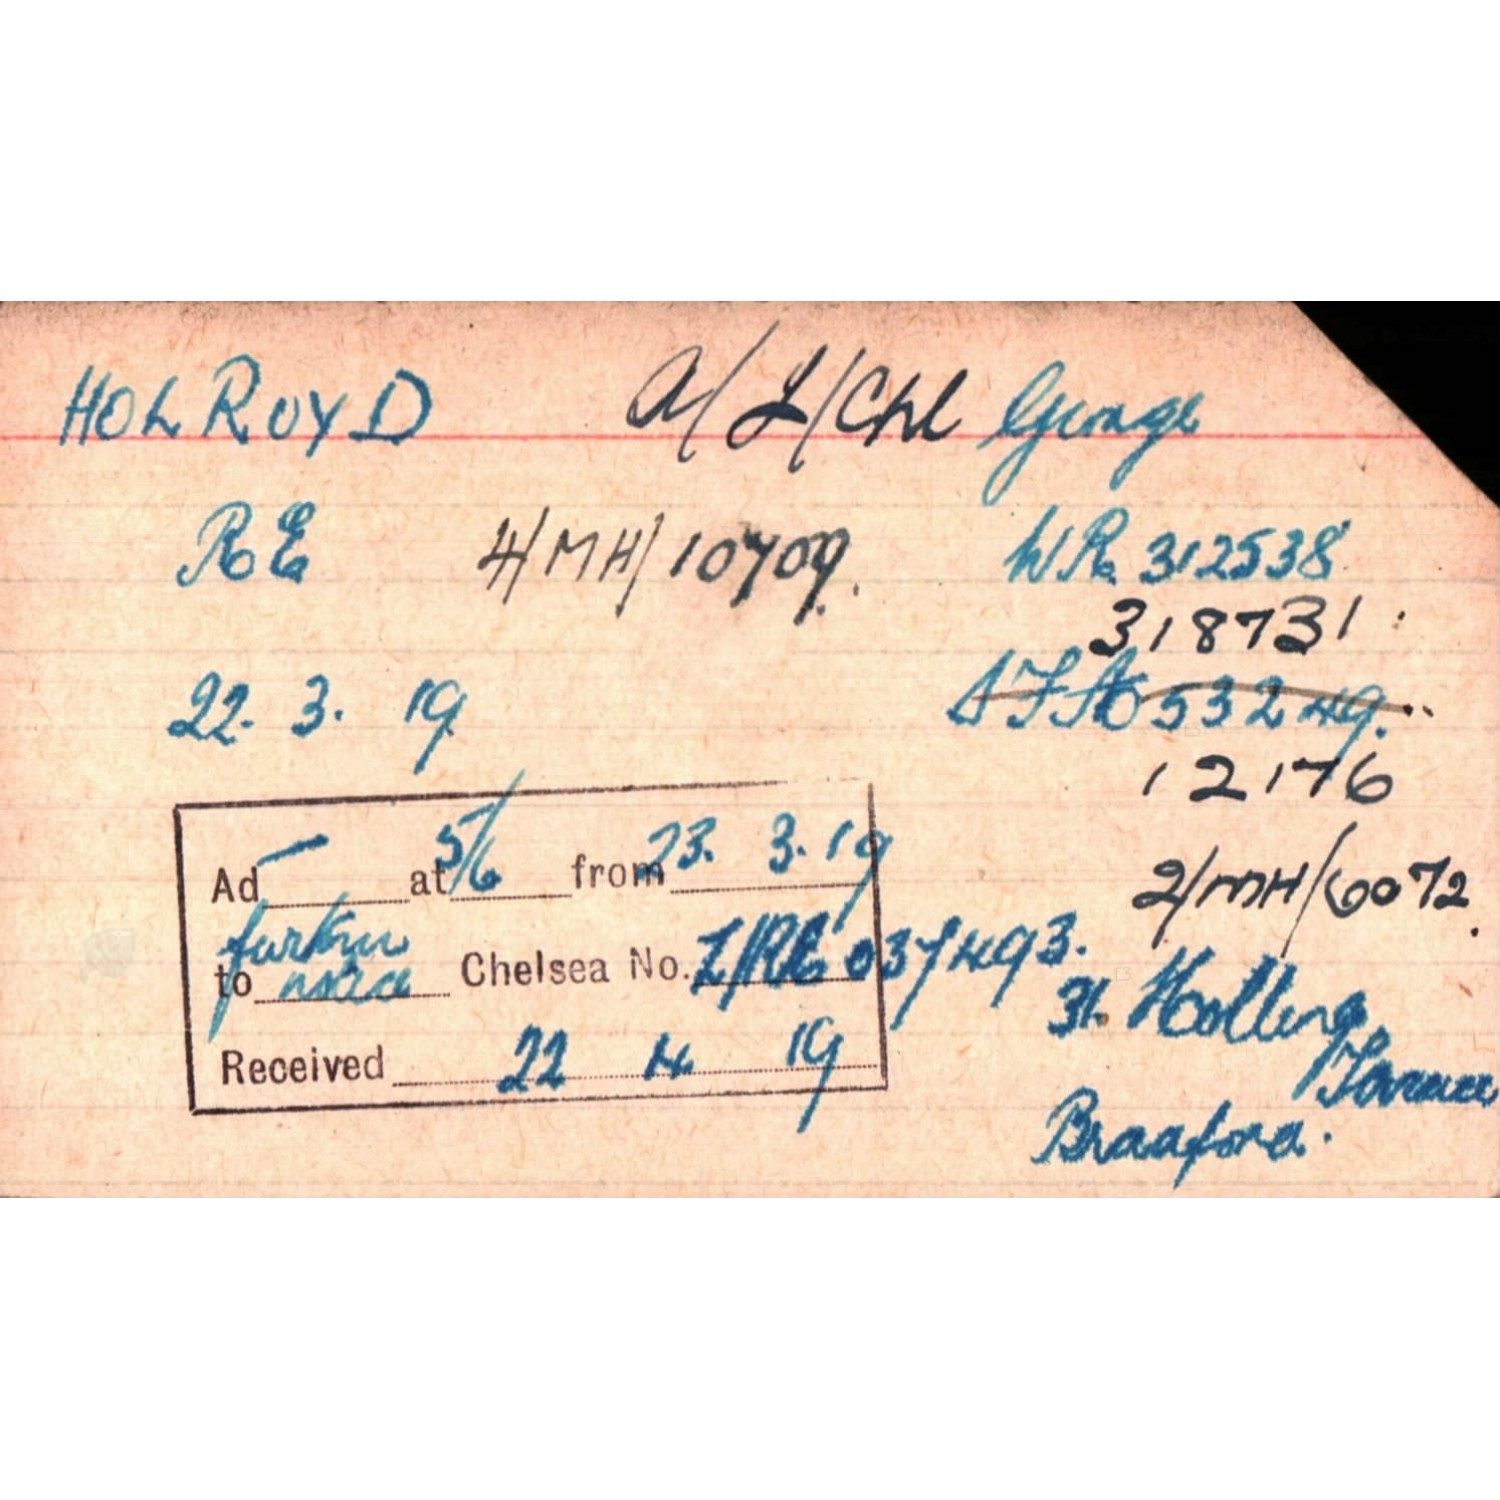 HOLROYD A/L/Cpl George
RE 4/MH/10709. WR 312538
318731
22. 3. 19 53249.
12176
Ad — at 5/6 from 23. 3. 19
2/MH/6072.
to further notice Chelsea No. 037493.
31. Hollings
Received 22 4 19
Terrace
Bradford.